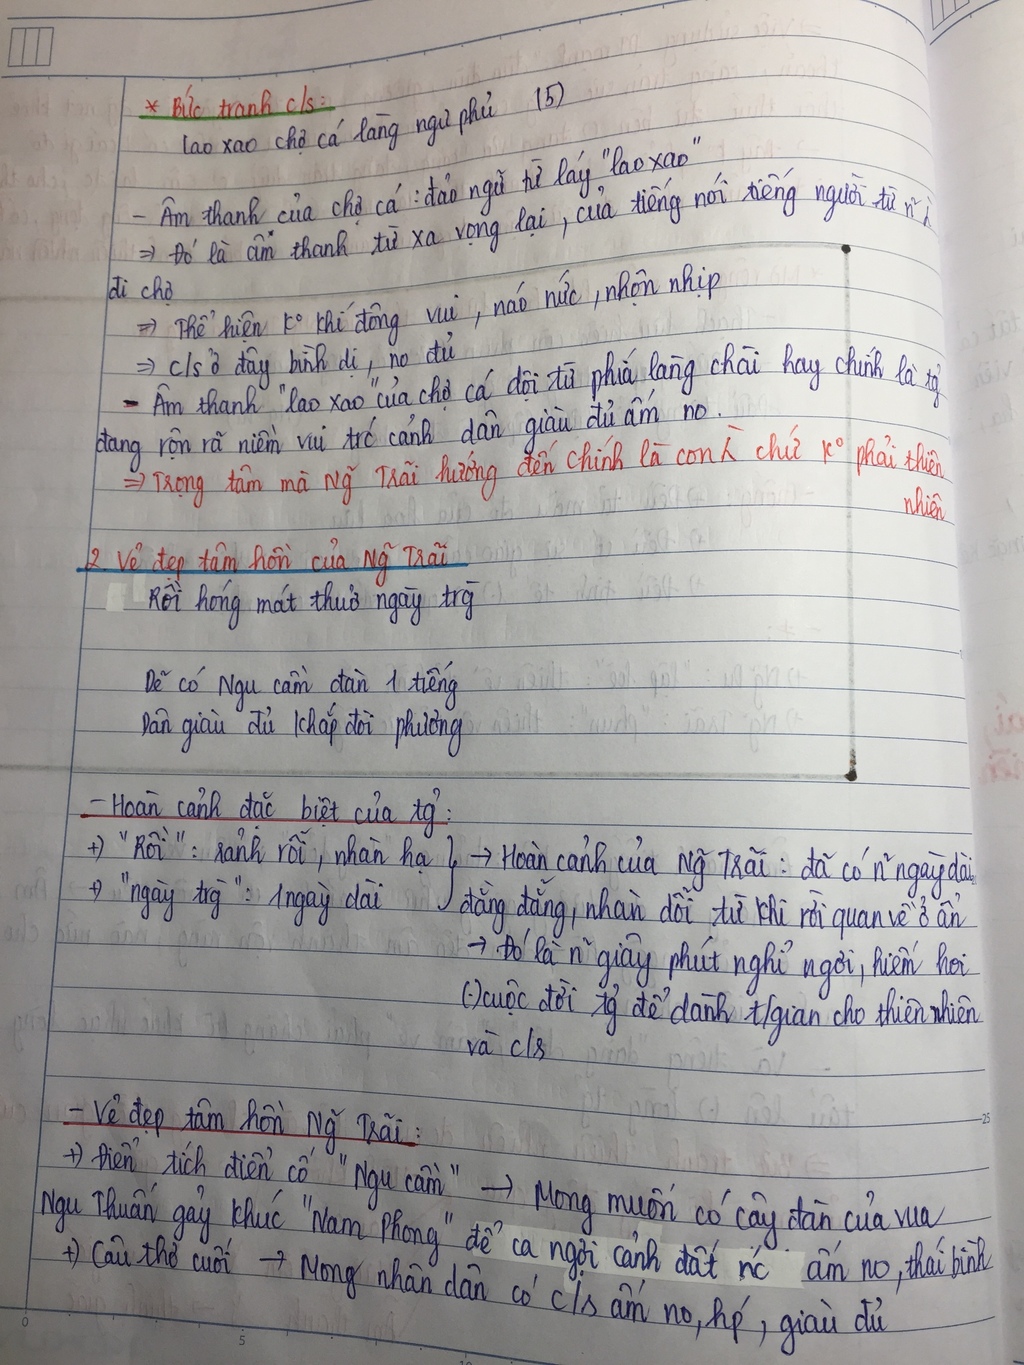 * Bức tranh c/s:
lao xao chợ cá làng ngư phủ (5)
- Âm thanh của chợ cá : đảo ngữ từ láy "lao xao"
=> Đó là âm thanh từ xa vọng lại, của tiếng nói tiếng người từ n~
đi chợ
=> Thể hiện k° khí đông vui, náo nức, nhộn nhịp
=> c/s ở đây bình dị, no đủ
- Âm thanh "lao xao" của chợ cá dội từ phía làng chài hay chính là tg̉
đang rộn rã niềm vui trc cảnh dân giàu đủ ấm no.
=> Trọng tâm mà Ng~ Trãi hướng đến chính là con chứ k° phải thiên
nhiên
2. Vẻ đẹp tâm hồn của Ng~ Trãi
Rồi hóng mát thuở ngày trg̀
Dẽ có Ngu cầm đàn 1 tiếng
Dân giàu đủ khắp đòi phương
- Hoàn cảnh đặc biệt của tg̉:
+) "Rồi": rảnh rỗi, nhàn hạ } → Hoàn cảnh của Ng~ Trãi : đã có n~ ngày dài
+) "ngày trg̀": 1 ngày dài đằng đẵng, nhàn dỗi từ khi rời quan về ở ẩn
→ Đó là n~ giây phút nghỉ ngơi, hiếm hoi
(-) cuộc đời tg̉ để dành t/gian cho thiên nhiên
và c/s
- Vẻ đẹp tâm hồn Ng~ Trãi :
+) Điển tích điển cố "Ngu cầm" → Mong muốn có cây đàn của vua
Ngu Thuấn gảy khúc "Nam Phong" để ca ngợi cảnh đất nc ấm no, thái bình
+) Câu thơ cuối → Mong nhân dân có c/s ấm no, hp, giàu đủ
25
0
5
10